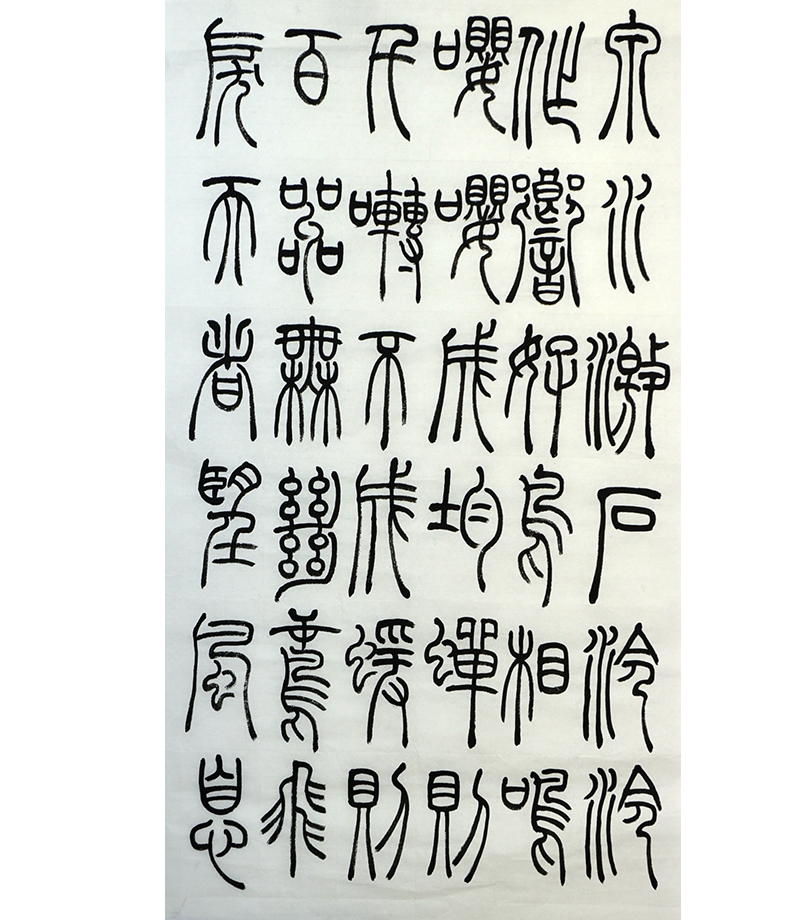 泉水激石泠泠
作響好鳥相鳴
嚶嚶成均蟬則
千囀不成猨則
百嘂無絕鳶飛
戾天者望風息